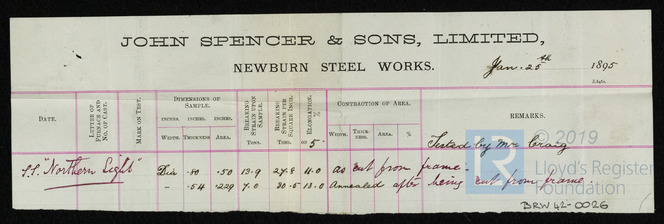 JOHN SPENCER & SONS, LIMITED,
NEWBURN STEEL WORKS.
Jan. 25th 1895
DATE.
LETTER OF FURNACE AND NO. OF CAST.
MARK ON TEST.
DIMENSIONS OF SAMPLE.
INCHES. INCHES. INCHES.
WIDTH. THICKNESS AREA.
BREAKING STRAIN UPON SAMPLE.
TONS.
BREAKING STRAIN PER SQUARE INCH.
TONS.
ELONGATION. %
in 5"
CONTRACTION OF AREA.
WIDTH. THICKNESS. AREA. %
REMARKS.
Tested by Mr Craig
S.S. "Northern Light" Dia .80 .50 13.9 27.8 11.0 as cut from frame.
— .54 .229 7.0 30.5 13.0 Annealed after being cut from frame
© 2019
Lloyd's Register
Foundation
BRW 42-0026